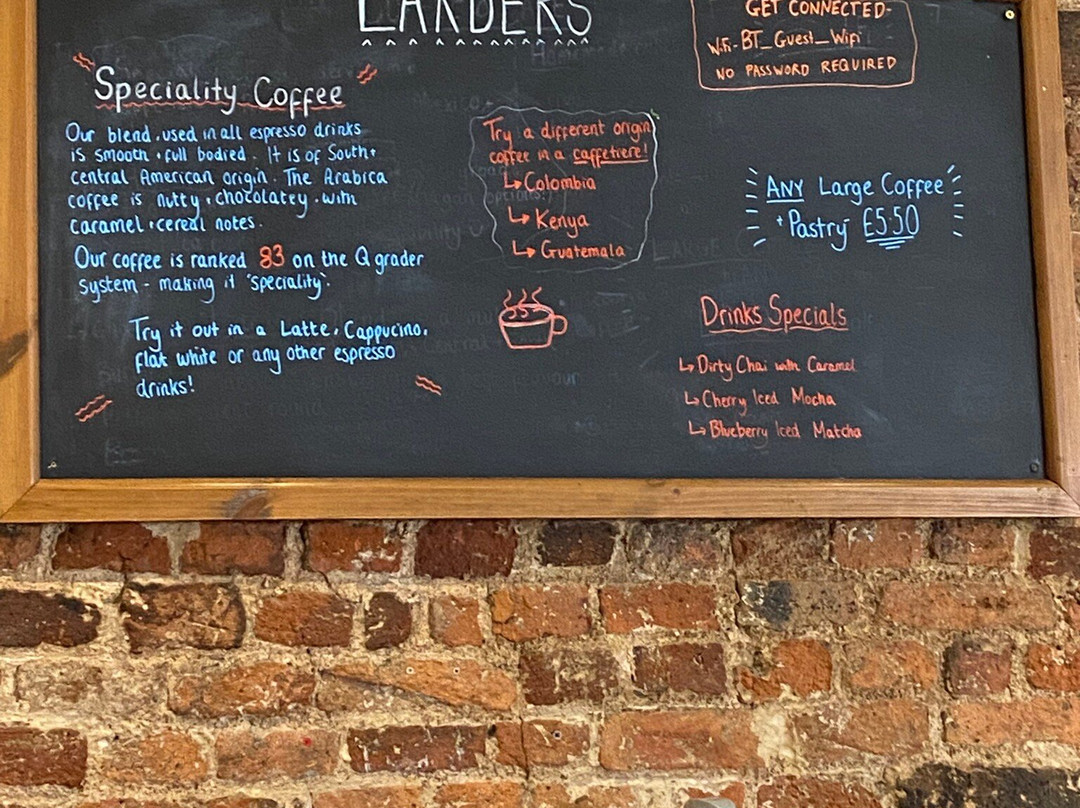 LARDERS
Speciality Coffee
Our blend, used in all espresso drinks
is smooth + full bodied. It is of South +
central American origin. The Arabica
coffee is nutty + chocolatey with
caramel + cereal notes.
Our coffee is ranked 83 on the Q grader
system - making it 'speciality'.
Try it out in a Latte, Cappucino,
flat white or any other espresso
drinks!
Try a different origin
coffee in a caffetiere!
↳ Colombia
↳ Kenya
↳ Guatemala
GET CONNECTED-
WiFi-BT_Guest_Wifi
NO PASSWORD REQUIRED
ANY Large Coffee
+ Pastry £5.50
Drinks Specials
↳ Dirty Chai with Caramel
↳ Cherry Iced Mocha
↳ Blueberry Iced Matcha